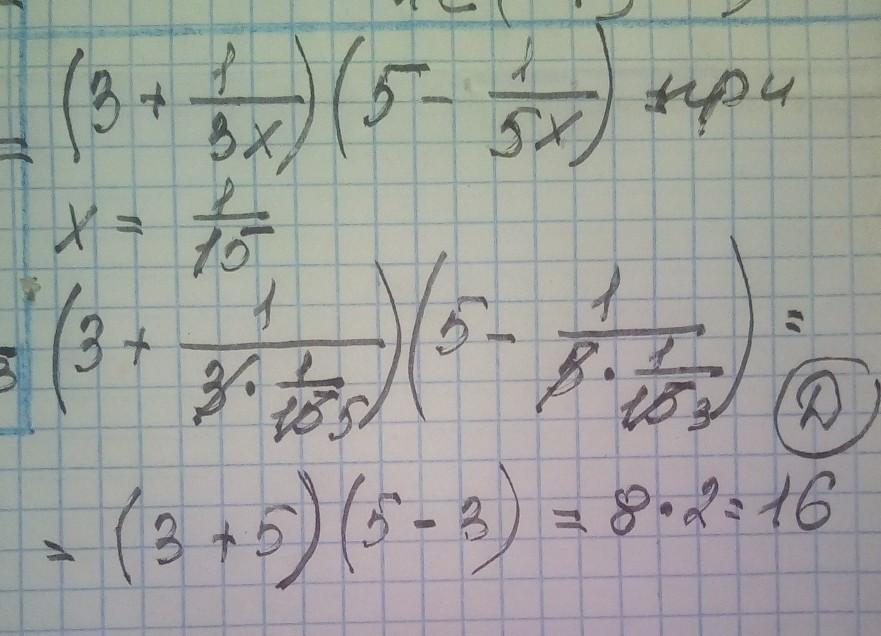 = (3 + 1/(3x)) (5 - 1/(5x)) при
x = 1/15
(3 + 1/(3 · 1/15 5)) (5 - 1/(5 · 1/15 3)) =
Д
= (3 + 5) (5 - 3) = 8 · 2 = 16